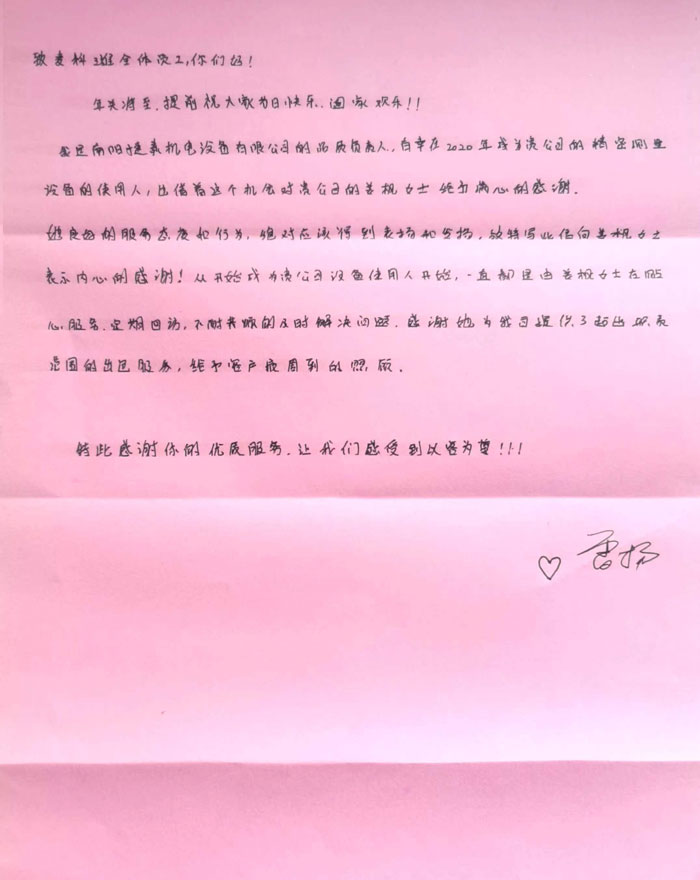 致麦科三维全体员工,你们好!
年关将至.提前祝大家节日快乐.阖家欢乐!!
我是南阳捷嘉机电设备有限公司的品质负责人,有幸在2020年成为贵公司的精密测量
设备的使用人,也借着这个机会对贵公司的姜机力士给予满心的感谢.
她良好的服务态度和行为,绝对应该得到表扬和宣扬,故特写此信向姜机力士
表示内心的感谢!从开始成为贵公司设备使用人开始,一直都是由姜机力士在贴
心服务.定期回访,不耐其烦的及时解决问题.感谢她为我司提供了超出职责
范围的出色服务,给予客户最周到的照顾.
特此感谢你的优质服务.让我们感受到以客为尊!!!